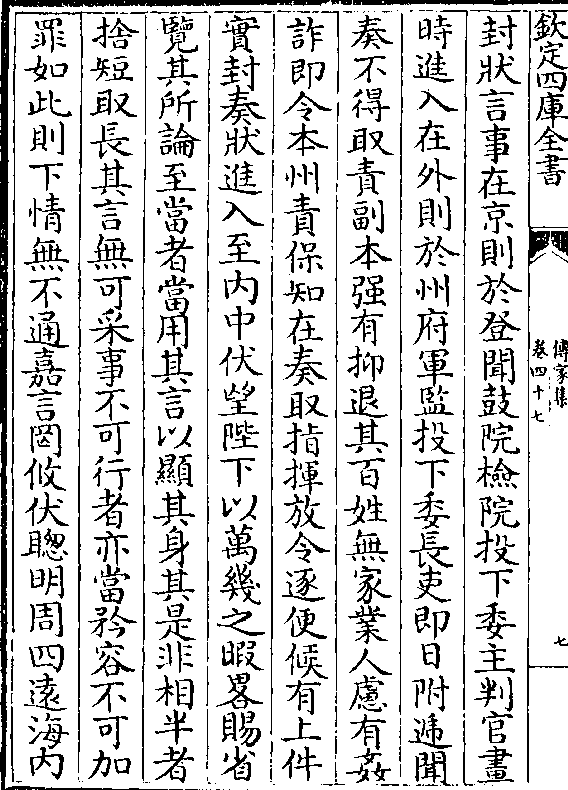 欽定四庫全書
傳家集
卷四十七
七
封狀言事在京則於登聞鼓院檢院投下委主判官畫
時進入在外則於州府軍監投下委長吏即日附遞聞
奏不得取責副本强有抑退其百姓無家業人慮有姦
詐即令本州責保知在奏取指揮放令逐便候有上件
實封奏狀進入至内中伏望陛下以萬幾之暇畧賜省
覽其所論至當者當用其言以顯其身其是非相半者
捨短取長其言無可采事不可行者亦當矜容不可加
罪如此則下情無不通嘉言罔攸伏聰明周四逺海内